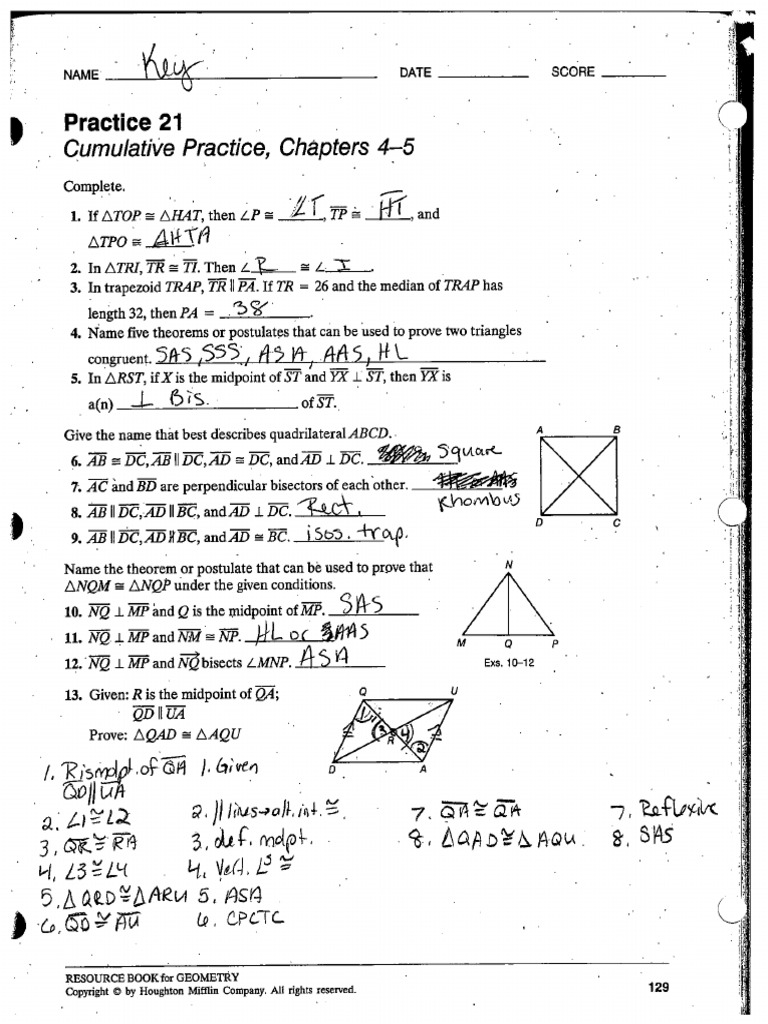 NAME Key DATE SCORE
Practice 21
Cumulative Practice, Chapters 4–5
Complete.
1. If △TOP ≅ △HAT, then ∠P ≅ ∠T, T̅P̅ ≅ H̅T̅, and
△TPO ≅ △HTA.
2. In △TRI, T̅R̅ ≅ T̅I̅. Then ∠R ≅ ∠I.
3. In trapezoid TRAP, T̅R̅ ∥ P̅A̅. If TR = 26 and the median of TRAP has
length 32, then PA = 38.
4. Name five theorems or postulates that can be used to prove two triangles
congruent. SAS, SSS, ASA, AAS, HL
5. In △RST, if X is the midpoint of S̅T̅ and Y̅X̅ ⊥ S̅T̅, then Y̅X̅ is
a(n) ⊥ Bis. of S̅T̅.
Give the name that best describes quadrilateral ABCD.
A B
6. A̅B̅ ≅ D̅C̅, A̅B̅ ∥ D̅C̅, A̅D̅ ≅ D̅C̅, and A̅D̅ ⊥ D̅C̅. Square
7. A̅C̅ and B̅D̅ are perpendicular bisectors of each other. Rhombus
8. A̅B̅ ∥ D̅C̅, A̅D̅ ∥ B̅C̅, and A̅D̅ ⊥ D̅C̅. Rect.
D C
9. A̅B̅ ∥ D̅C̅, A̅D̅ ∦ B̅C̅, and A̅D̅ ≅ B̅C̅. isos. trap.
Name the theorem or postulate that can be used to prove that
△NQM ≅ △NQP under the given conditions.
N
10. N̅Q̅ ⊥ M̅P̅ and Q is the midpoint of M̅P̅. SAS
11. N̅Q̅ ⊥ M̅P̅ and N̅M̅ ≅ N̅P̅. HL or AAS
M Q P
12. N̅Q̅ ⊥ M̅P̅ and NQ⃗ bisects ∠MNP. ASA
Exs. 10–12
13. Given: R is the midpoint of Q̅A̅;
Q̅D̅ ∥ U̅A̅
Prove: △QAD ≅ △AQU
Q U
1 3 4 2
R
D A
1. R is mdpt. of Q̅A̅ 1. Given
Q̅D̅ // U̅A̅
2. ∠1 ≅ ∠2 2. // lines → alt. int. ≅
3. Q̅R̅ ≅ R̅A̅ 3. def. mdpt.
4. ∠3 ≅ ∠4 4. Vert. ∠s ≅
5. △QRD ≅ △ARU 5. ASA
6. Q̅D̅ ≅ A̅U̅ 6. CPCTC
7. Q̅A̅ ≅ Q̅A̅ 7. Reflexive
8. △QAD ≅ △AQU. 8. SAS
RESOURCE BOOK for GEOMETRY
Copyright © by Houghton Mifflin Company. All rights reserved.
129